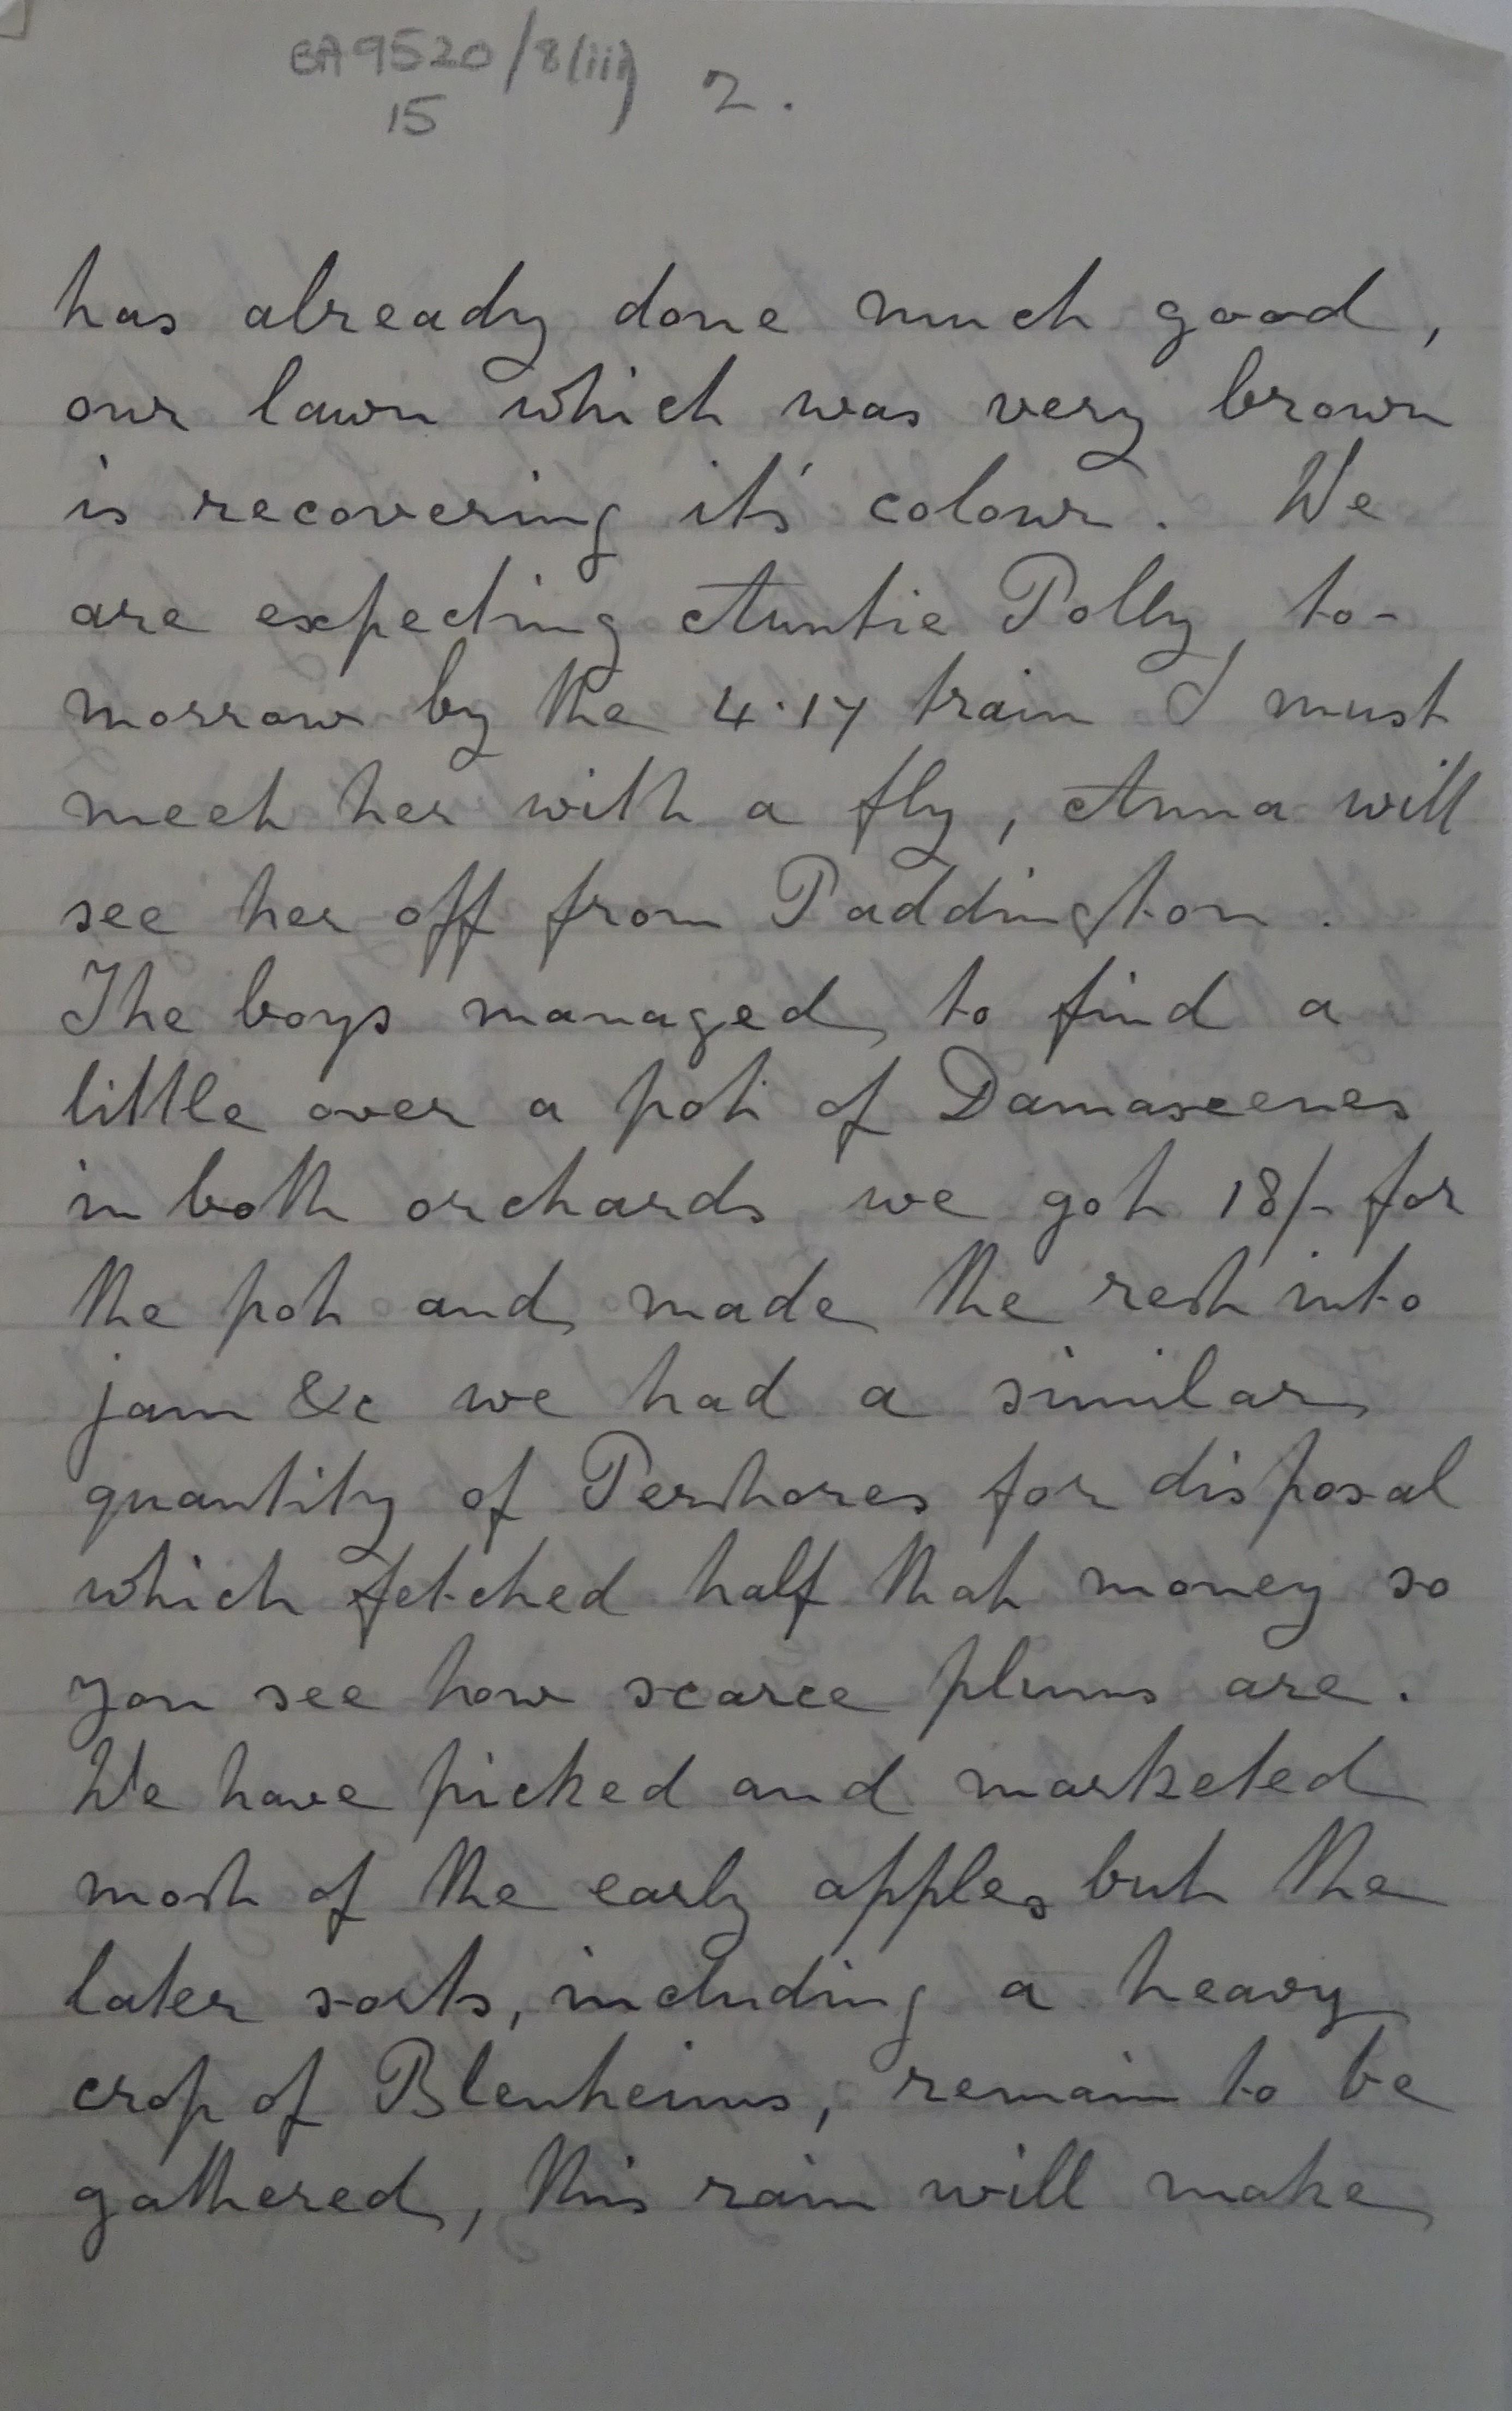 BA9520/8(iii)
15
2.
has already done much good,
our lawn which was very brown
is recovering it's colour. We
are expecting Auntie Polly to-
morrow by the 4.17 train I must
meet her with a fly, Anna will
see her off from Paddington.
The boys managed to find a
little over a pot of Damascenes
in both orchards we got 18/- for
the pot and made the rest into
jam &c we had a similar
quantity of Pershores for disposal
which fetched half that money so
you see how scarce plums are.
We have picked and marketed
most of the early apples but the
later sorts, including a heavy
crop of Blenheims, remain to be
gathered, this rain will make